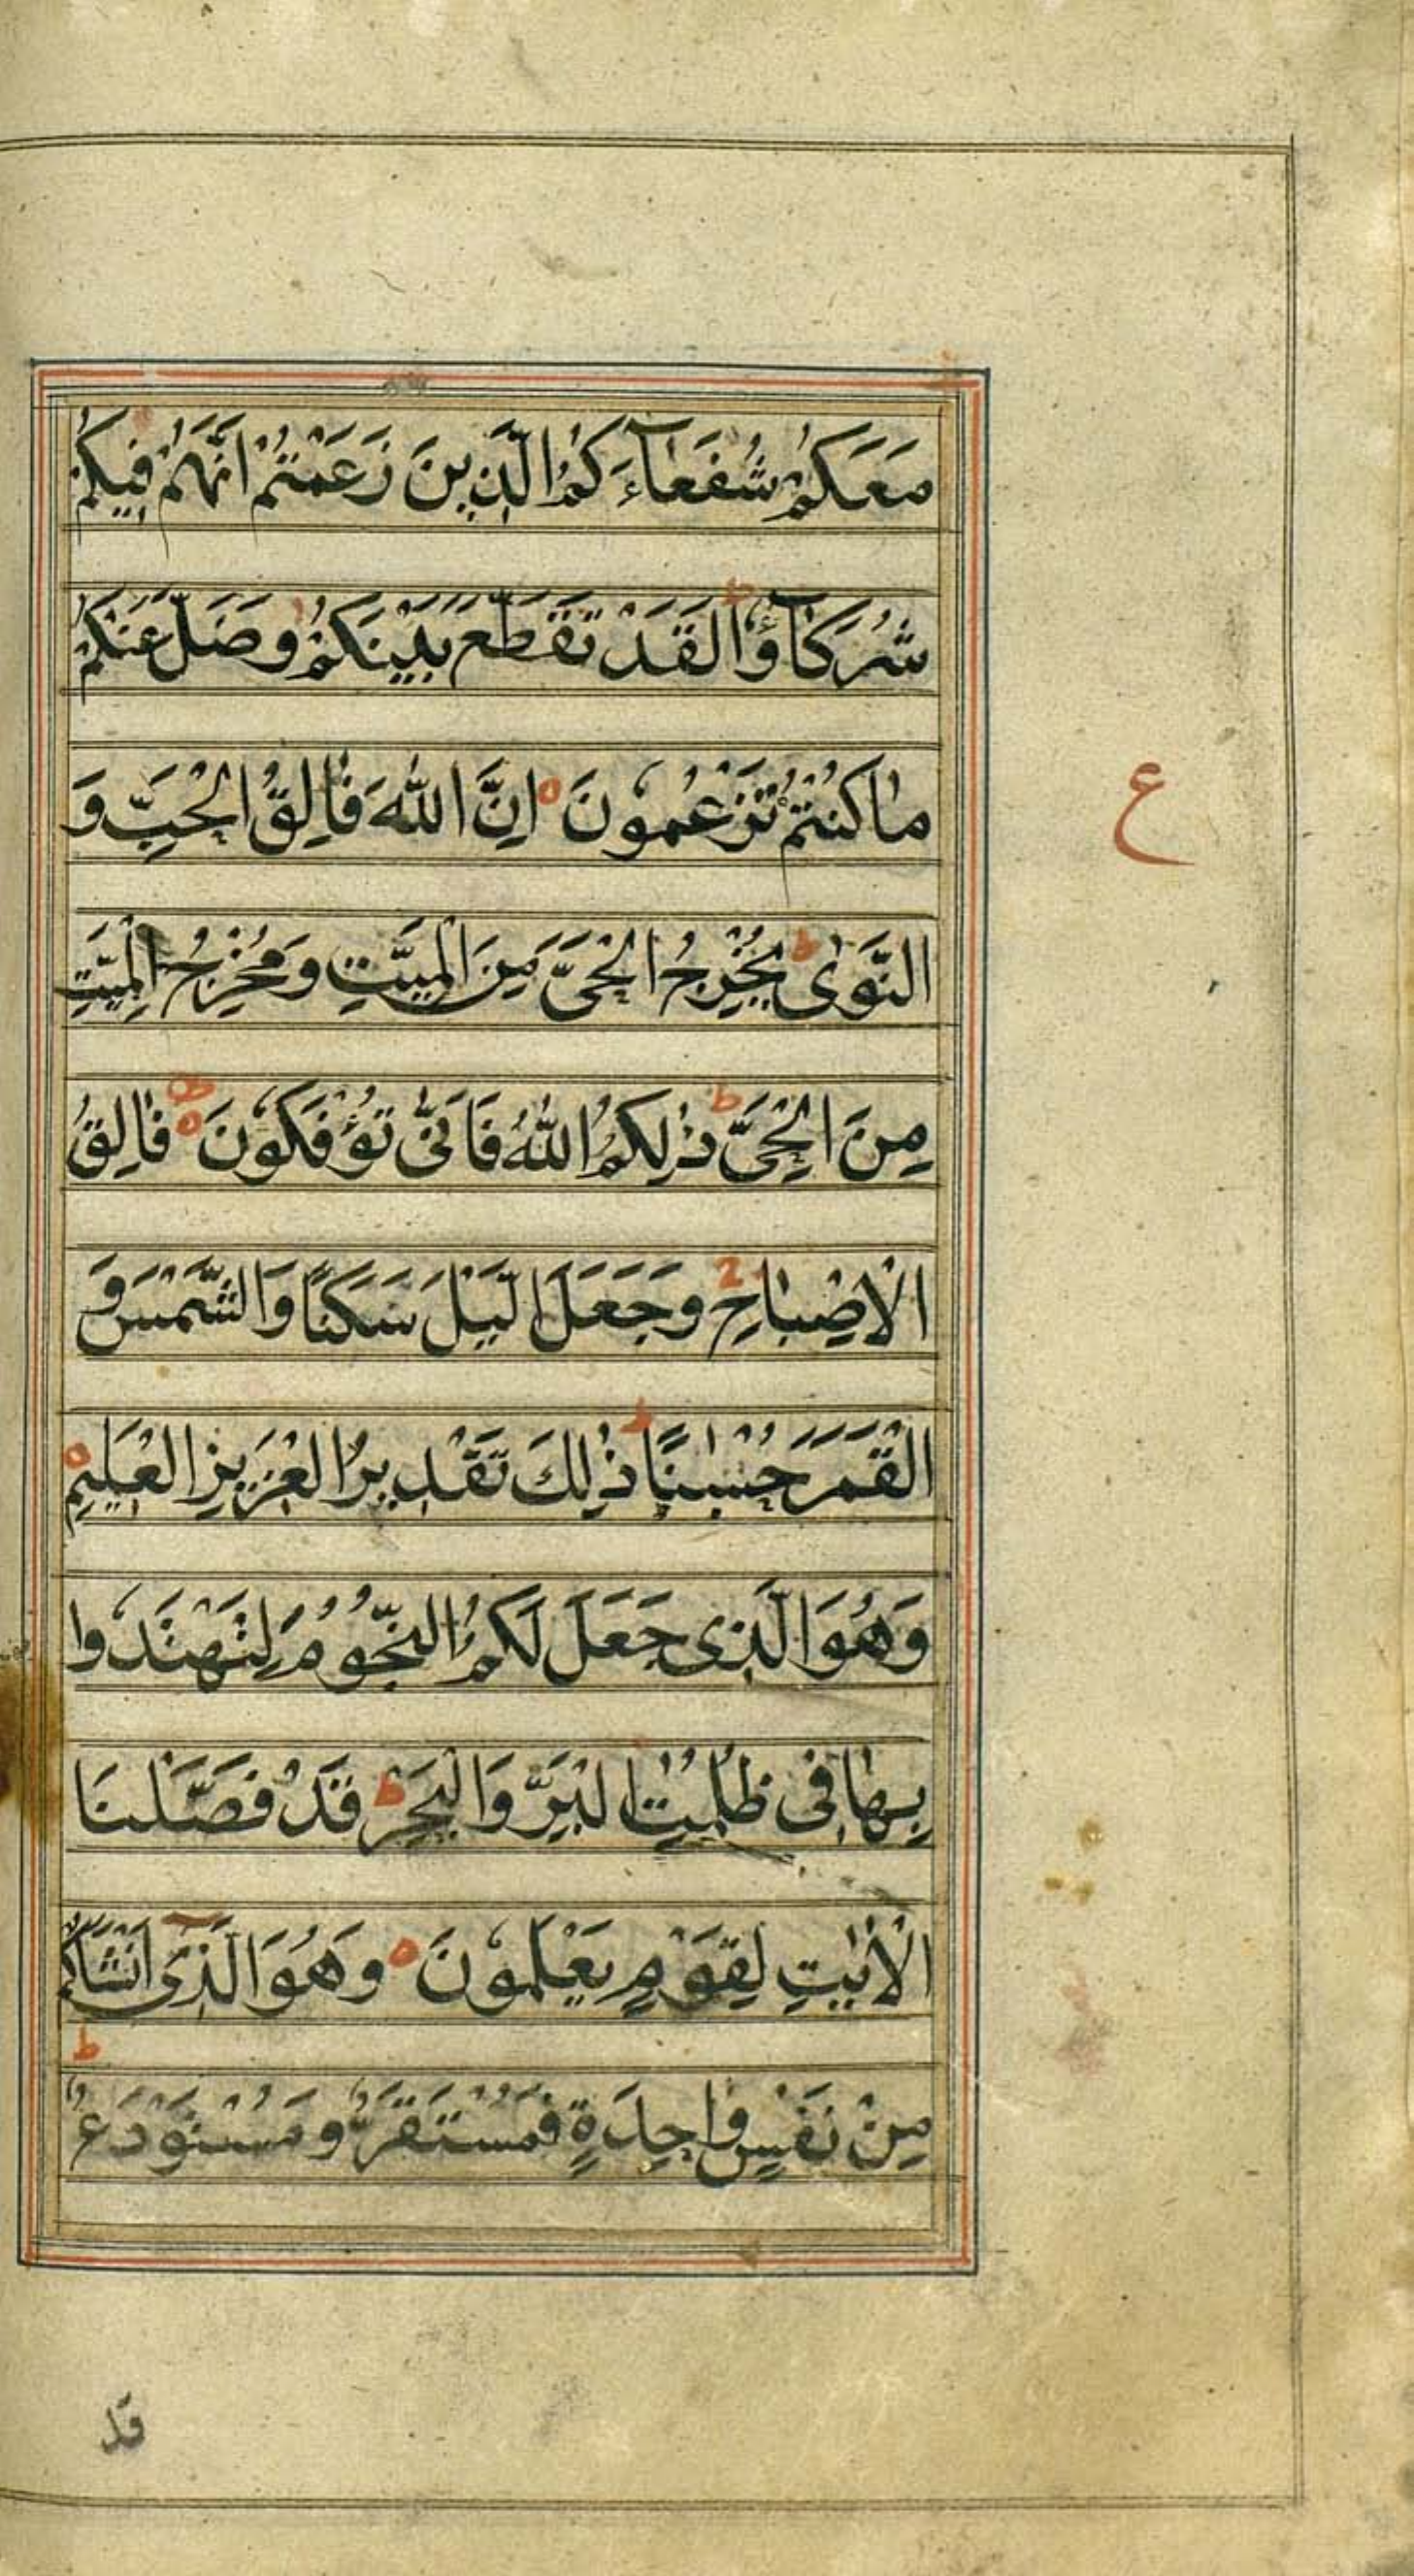 مَعَكُمْ شُفَعَآءَكُمُ الَّذِينَ زَعَمْتُمْ اَنَّهُمْ فِيكُمْ
شُرَكَآؤُا لَقَدْ تَقَطَّعَ بَيْنَكُمْ وَضَلَّ عَنْكُمْ
مَا كُنْتُمْ تَزْعُمُونَ ٥ اِنَّ اللّٰهَ فَالِقُ الْحَبِّ وَ
ع
النَّوٰى ط يُخْرِجُ الْحَىَّ مِنَ الْمَيِّتِ وَمُخْرِجُ الْمَيِّتِ
مِنَ الْحَىِّ ط ذٰلِكُمُ اللّٰهُ فَاَنّٰى تُؤْفَكُونَ ٥ فَالِقُ
الْاِصْبَاحِ ج وَجَعَلَ الَّيْلَ سَكَنًا وَالشَّمْسَ وَ
الْقَمَرَ حُسْبٰنًا ط ذٰلِكَ تَقْدِيرُ الْعَزِيزِ الْعَلِيمِ ٥
وَهُوَ الَّذِى جَعَلَ لَكُمُ النُّجُومَ لِتَهْتَدُوا
بِهَا فِى ظُلُمٰتِ الْبَرِّ وَالْبَحْرِ ط قَدْ فَصَّلْنَا
الْاٰيٰتِ لِقَوْمٍ يَعْلَمُونَ ٥ وَهُوَ الَّذِىٓ اَنْشَاَكُمْ
مِنْ نَفْسٍ وَاحِدَةٍ فَمُسْتَقَرٌّ وَمُسْتَوْدَعٌ ط
قد